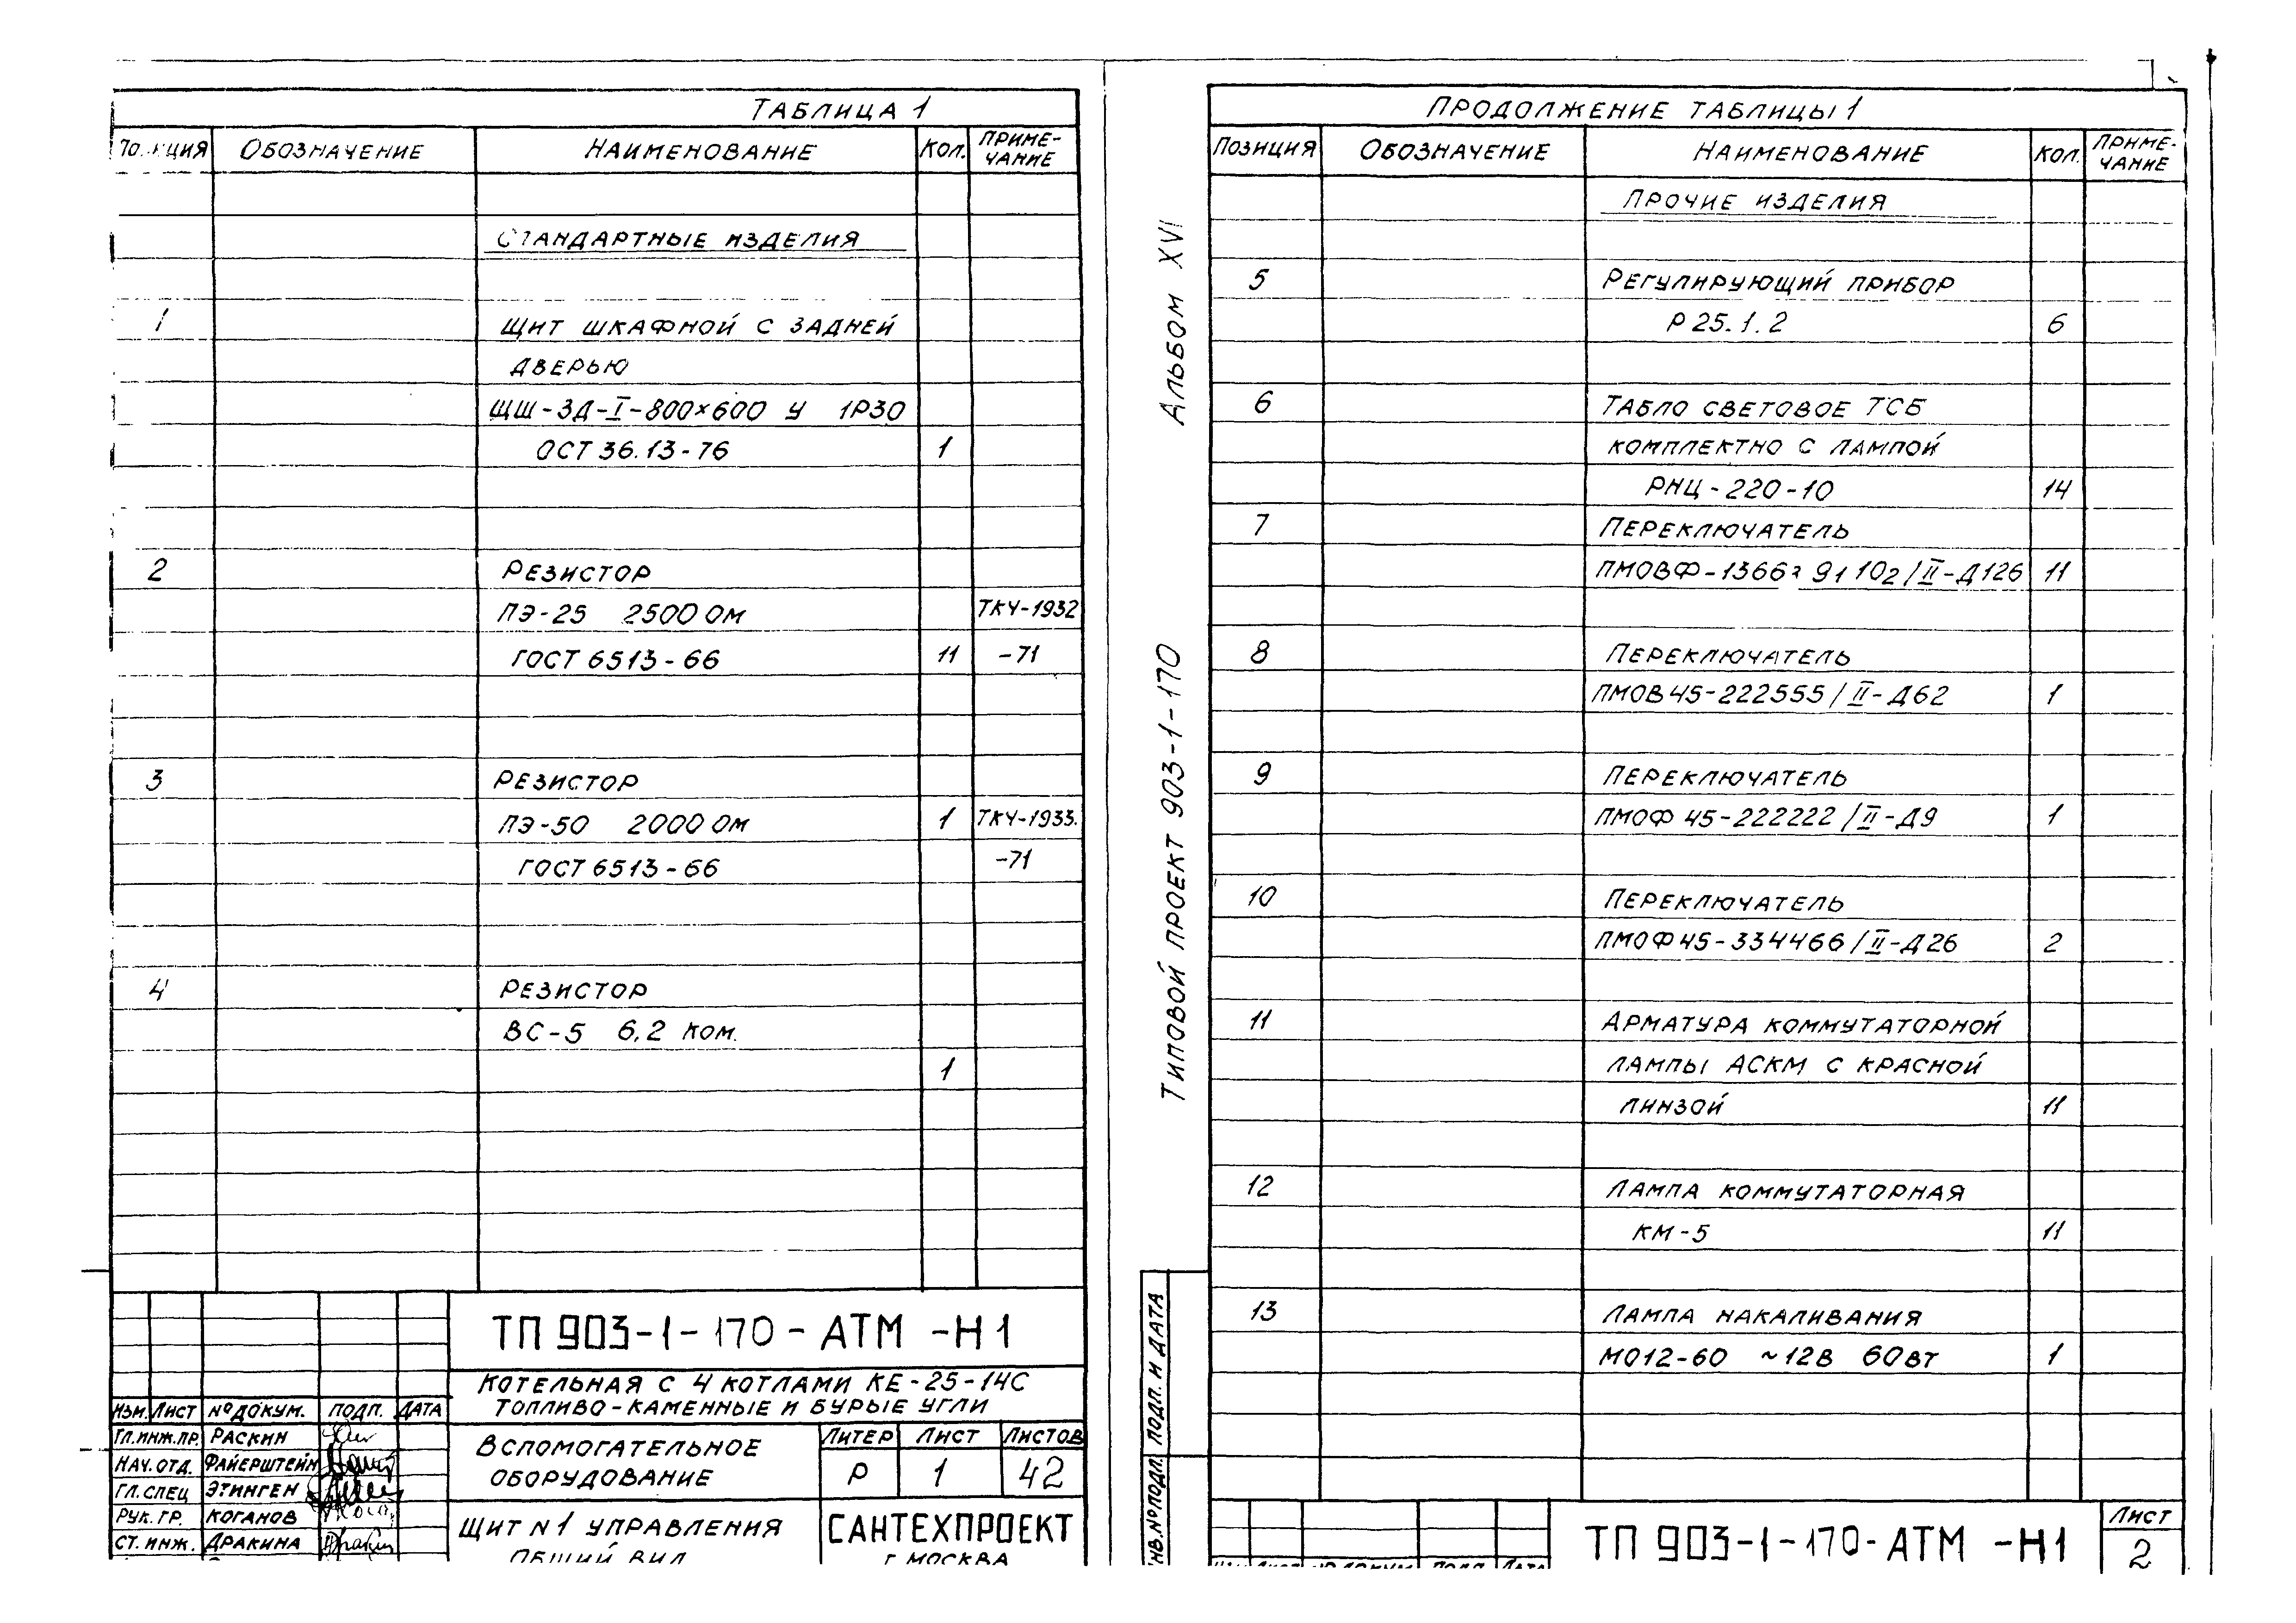 Таблица 1
Позиция Обозначение Наименование Кол. Приме-
чание
Стандартные изделия
1 Щит шкафной с задней
дверью
ЩШ-ЗД-I-800×600 У 1Р30
ОСТ 36.13-76 1
2 Резистор
ПЭ-25 2500 Ом ТКЧ-1932
ГОСТ 6513-66 11 -71
3 Резистор
ПЭ-50 2000 Ом 1 ТКЧ-1933.
ГОСТ 6513-66 -71
4 Резистор
ВС-5 6,2 ком.
1
ТП 903-1-170-АТМ -Н1
Котельная с 4 котлами КЕ-25-14С
Топливо-каменные и бурые угли
Изм. Лист № докум. Подп. Дата
Гл.инж.пр. Раскин
Нач. отд. Файерштейн
Гл. спец Этинген
Рук. гр. Коганов
Ст. инж. Дракина
Вспомогательное
оборудование
Литер Лист Листов
Р 1 42
Щит N1 управления
Общий вид
САНТЕХПРОЕКТ
г. Москва
Альбом XVI
Типовой проект 903-1-170
Подп. и дата
Инв.№подл.
Продолжение таблицы 1
Позиция Обозначение Наименование Кол. Приме-
чание
Прочие изделия
5 Регулирующий прибор
Р 25.1.2 6
6 Табло световое ТСБ
комплектно с лампой
РНЦ-220-10 14
7 Переключатель
ПМОВФ-1366 91 102/II-Д126 11
8 Переключатель
ПМОВ45-222555/II-Д62 1
9 Переключатель
ПМОФ 45-222222/II-Д9 1
10 Переключатель
ПМОФ45-334466/II-Д26 2
11 Арматура коммутаторной
лампы АСКМ с красной
линзой 11
12 Лампа коммутаторная
КМ-5 11
13 Лампа накаливания
МО12-60 ~12В 60Вт 1
ТП 903-1-170-АТМ -Н1
Лист
2